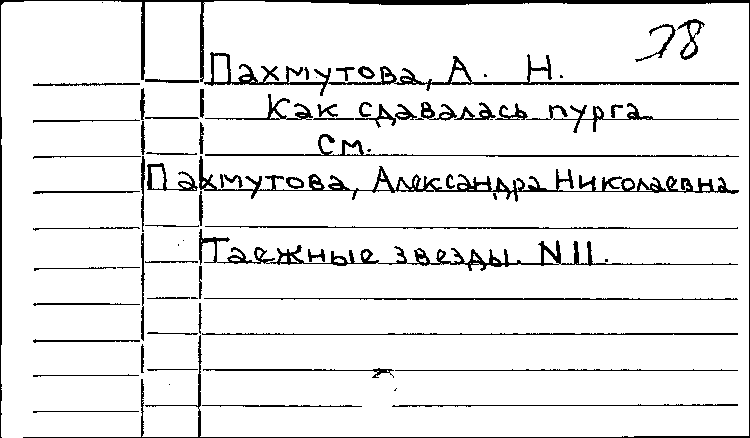 78
Пахмутова, А. Н.
Как сдавалась пурга
см.
Пахмутова, Александра Николаевна
Таежные звезды. N 11.